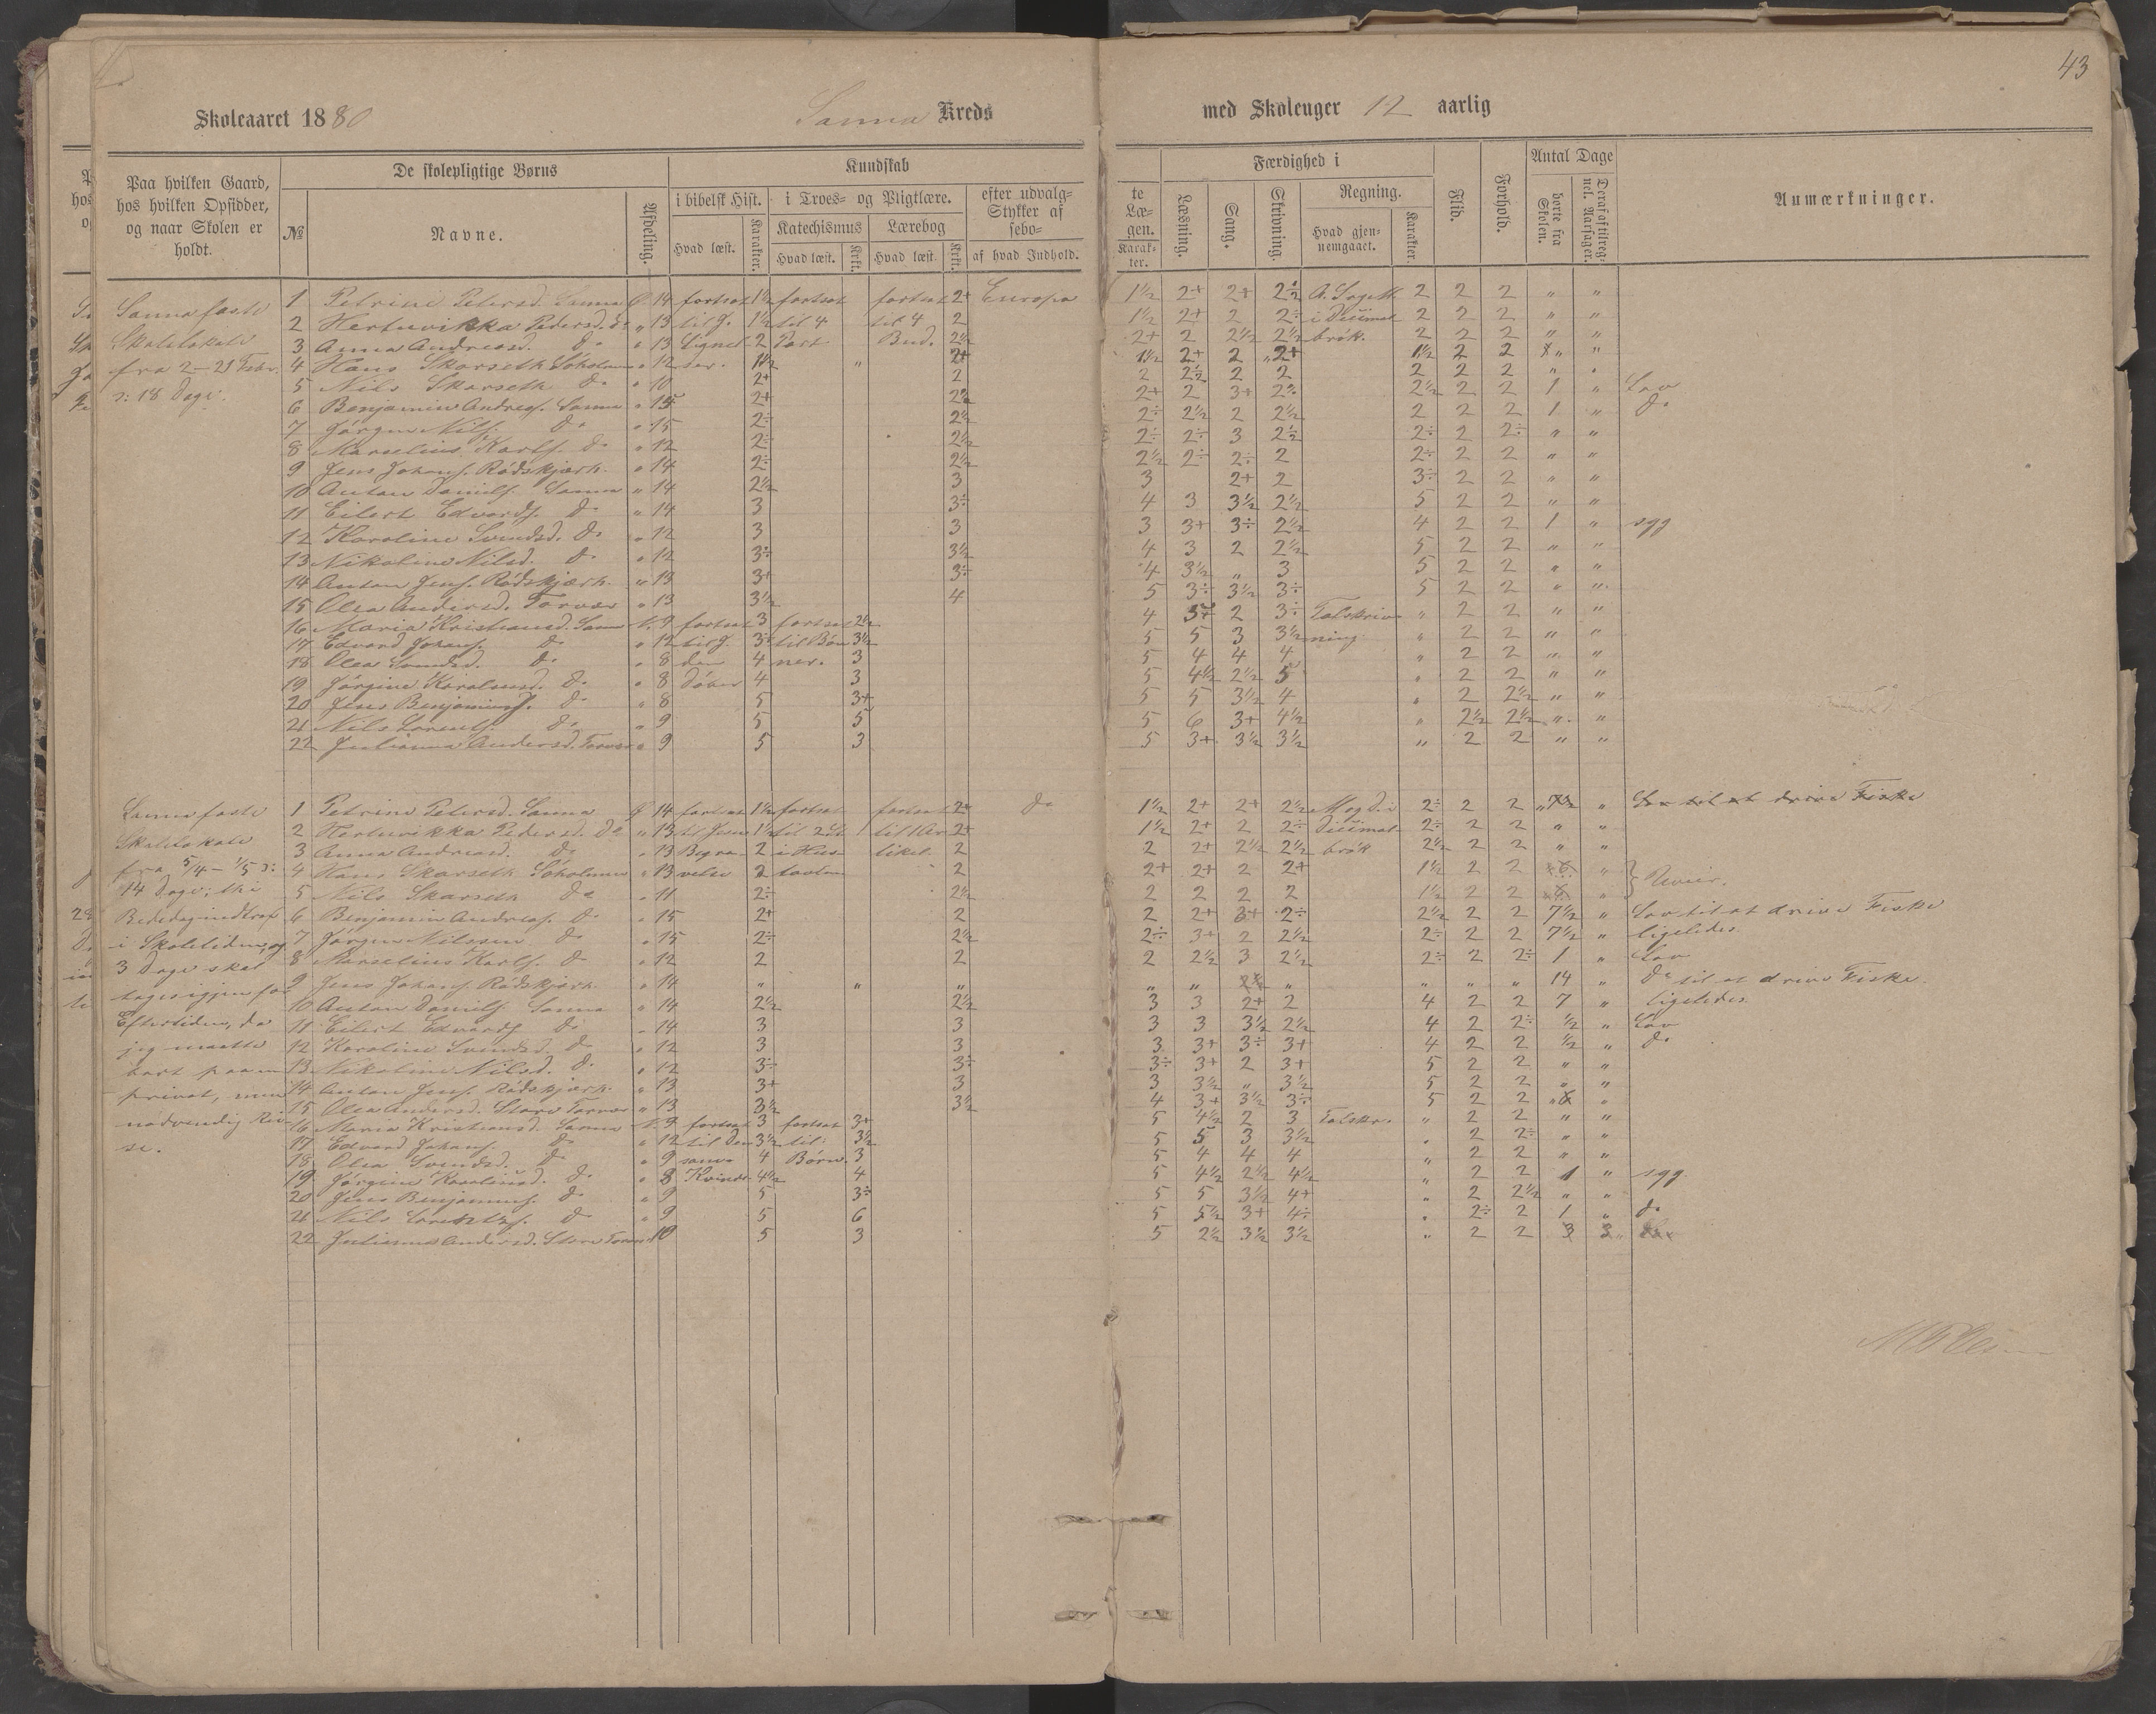 43
Skoleaaret 1880 Sanna Kreds med Skoleuger 12 aarlig
Paa hvilken Gaard, hos hvilken Opsidder, og naar Skolen er holdt.
De skolepligtige Børns
№ Navne. Afdeling.
Kundskab
i bibelsk Hist. i Troes- og Pligtlære. efter udvalgte Stykker af Læsebogen.
Hvad læst. Karakter. Katechismus Hvad læst. Krkt. Lærebog Hvad læst. Krkt. af hvad Indhold. Karakter.
Færdighed i
Læsning. Sang. Skrivning. Regning. Hvad gjennemgaaet. Karakter.
Flid. Forhold. Antal Dage borte fra Skolen.
Anmærkninger.
Sanna faste
Skolelokale
fra 2-21 Febr.
ɔ: 18 Dage.
1 Petrine Petersd. Sanna Ø 14 fortsat 1½ fortsat fortsat 2+ Europa 1½ 2+ 2+ 2½ 2 2 2 " "
2 Hertuvikka Pedersd. do " 13 til J. 1½ til 4 til 4 2 1½ 2+ 2 2÷ i Decimal 2 2 2 " "
3 Anna Andreasd. do " 13 Lignel 2 Part Bud. 2½ 2+ 2 2½ 2½ brök. 2 2 2 " "
4 Hans Skarseth Söholmen " 12 ser. 1½ " 2+ 1½ 2+ 2 2+ 1½ 2 2 " "
5 Nils Skarseth do " 10 2+ 2 2 2½ 2 2 2 2 2 " "
6 Benjamin Andreas. Sanna " 15 2+ 2+ 2 3+ 2½ 2 2 1 " Lov
7 Jörgen Nils. do " 15 2÷ 2½ 2÷ 2½ 2 2½ 2 2 2 1 " do
8 Marselius Karls. do " 12 2÷ 2½ 2÷ 2÷ 3 2½ 2÷ 2 2÷ " "
9 Jens Johans. Rödskjærh. " 14 2÷ 2½ 2½ 2÷ 2÷ 2 2÷ 2 2 " "
10 Anton Daniels. Sanna " 14 2½ 3 3 2+ 2 3÷ 2 2 " "
11 Eilert Edvards. do " 14 3 3÷ 4 3 3½ 2½ 5 2 2 " "
12 Karoline Svendsd. do " 12 3 3 3 3+ 3÷ 2½ 4 2 2 1 " syg
13 Nikoline Nilsd. do " 12 3÷ 3½ 4 3 2 2½ 5 2 2 " "
14 Anton Jens. Rödskjærh. " 13 3+ 3÷ 4 3½ " 3 5 2 2 " "
15 Olea Andersd. Torvær " 13 3½ 4 5 3÷ 3½ 3÷ 5 2 2 " "
16 Maria Kristiansd. Sanna N. 9 fortsat 3 fortsat 2½ 4 2 3÷ Talskriv " 2 2 " "
17 Edvard Johans. do " 12 til J. 3÷ til Bøn 3½ 5 5 3 3½ ning. " 2 2 " "
18 Olea Svendsd. do " 8 den 4 ner. 3 5 4 4 4 " 2 2 " "
19 Jörgine Karolusd. do " 8 Döber 4 3 5 4½ 2½ 5 " 2 2 " "
20 Jens Benjamins. do " 8 5 3+ 5 5 3½ 4 " 2 2½ " "
21 Nils Lorents. do " 9 5 5 5 6 3+ 4½ " 2½ 2½ " "
22 Julianna Andersd. Torvær " 9 5 3 5 3+ 3½ 3½ " 2 2 " "
Sanna faste
Skolelokale
fra 5/4 - 1/5 ɔ:
14 Dage; thi
Bededag indtraf
i Skoletiden, og
3 Dage skal
tages igjen for
Eftertiden, da
jeg maatte
bort paa en
privat, men
nødvendig Rei-
se.
1 Petrine Petersd. Sanna Ø 14 fortsat 1½ fortsat fortsat 2+ do 1½ 2+ 2+ 2½ 2÷ 2 2 " Lov til at drive Fiske
2 Hertuvikka Pedersd. do " 13 til Jesu 1½ til 2det 2+ 1½ 2+ 2 2÷ Decimal 2÷ 2 2 " "
3 Anna Andreasd. do " 13 Begra- 2 i Hus- 2 2 2+ 2½ 2½ brök 2½ 2 2 " "
4 Hans Skarseth Söholmen " 13 velse 2 tavlen 2 2+ 2+ 2 2+ 1½ 2 2 6 "
5 Nils Skarseth do " 11 2÷ 2½ 2 2 2 2 1½ 2 2 6 " } Uveir.
6 Benjamin Andreas. do " 15 2+ 2 2 2+ 3+ 2÷ 2½ 2 2 7½ " Lov til at drive Fiske
7 Jörgen Nilssen do " 15 2÷ 2½ 2÷ 3+ 2 2½ 2÷ 2 2 7½ " ligeledes
8 Marselius Karls. do " 12 2 2 2 2½ 3 2½ 2÷ 2 2÷ 1 " Lov
9 Jens Johans. Rödskjærh. " 14 " " " " " " " " " 14 " do til at drive Fiske.
10 Anton Daniels. Sanna " 14 2½ 2½ 3 3 2+ 2 4 2 2 7 " ligeledes
11 Eilert Edvards. do " 14 3 3 3 3 3½ 2½ 4 2 2÷ ½ " Lov
12 Karoline Svendsd. do " 12 3 3 3 3+ 3÷ 3+ 4 2 2 ½ " do
13 Nikoline Nilsd. do " 12 3÷ 3÷ 3÷ 3+ 2 3+ 5 2 2 " "
14 Anton Jens. Rödskjærh. " 13 3+ 3 3 3½ " 3½ 5 2 2 " "
15 Olea Andersd. Store Torvær " 13 3½ 3½ 4 3+ 3½ 3÷ 5 2 2 "
16 Maria Kristiansd. Sanna N. 9 fortsat 3 fortsat 3+ 5 4½ 2 3 Talskr. " 2 2 " "
17 Edvard Johans. do " 12 til Den 3½ til 3½ 5 5 3 3½ " 2 2÷ " "
18 Olea Svendsd. do " 9 4 Børn. 3 5 4 4 4 " 2 2 " "
19 Jörgine Karolusd. do " 8 Kvinde 4½ 4 5 4½ 2½ 4½ " 2 2 1 " syg
20 Jens Benjamins. do " 9 5 3÷ 5 5 3½ 4+ " 2 2½ " "
21 Nils Lorents. do " 9 5 6 5 5½ 3+ 4÷ " 2÷ 2 1 " do
22 Julianna Andersd. Store Torvær 10 5 3 5 2½ 3½ 3½ " 2 2 3 3